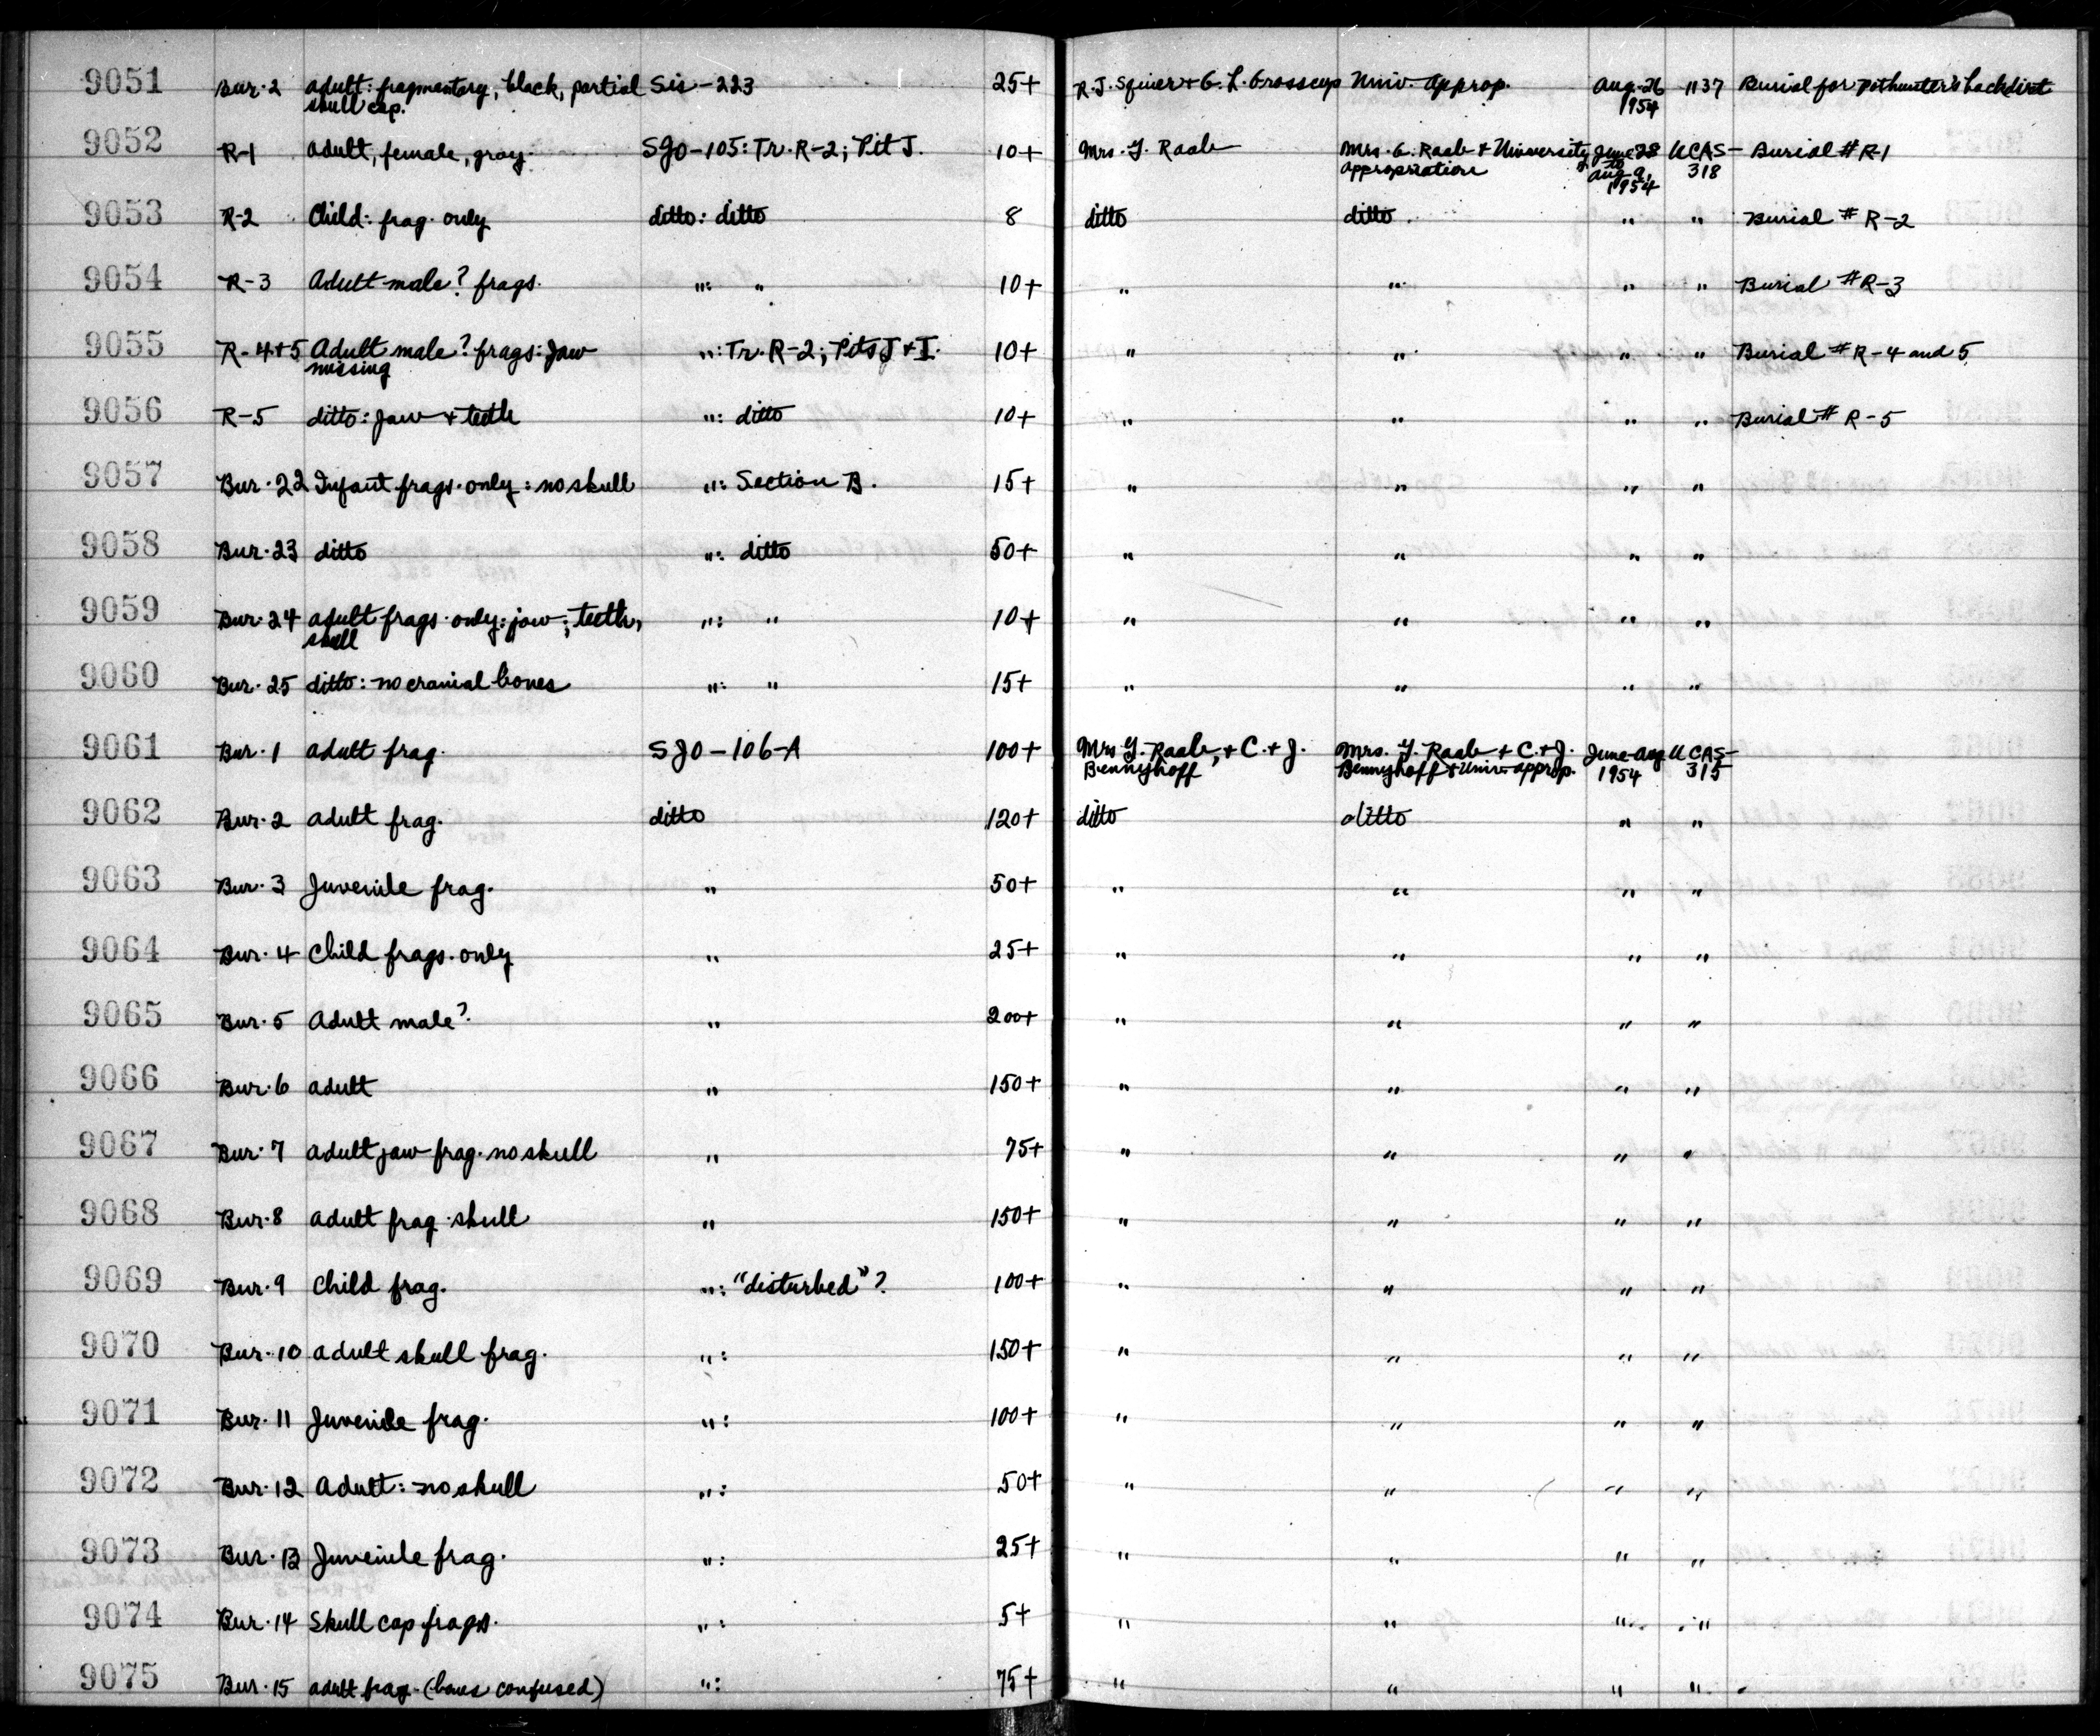 9051 Bur. 2 adult: fragmentary, black, partial Sis-223 25+ R.J. Squier + G. L. Grosscup Univ. approp. Aug. 26 1137 Burial for pothunter's backdirt
skull cap. 1954
9052 R-1 adult, female, gray. SJO-105: Tr. R-2; Pit J. 10+ Mrs. Y. Raab Mrs. G. Raab + University June 28 UCAS- Burial # R-1
appropriation to 318
Aug 9,
1954
9053 R-2 Child: frag. only ditto: ditto 8 ditto ditto " " Burial # R-2
9054 R-3 Adult male? frags. ": " 10+ " " " " Burial # R-3
9055 R-4+5 Adult male? frags: Jaw ": Tr. R-2; Pits J + I. 10+ " " " " Burial # R-4 and 5
missing
9056 R-5 ditto: Jaw + teeth ": ditto 10+ " " " " Burial # R-5
9057 Bur. 22 Infant frags. only: no skull ": Section B. 15+ " " " "
9058 Bur. 23 ditto ": ditto 50+ " " " "
9059 Bur. 24 adult frags. only: jaw; teeth, ": " 10+ " " " "
skull
9060 Bur. 25 ditto: no cranial bones ": " 15+ " " " "
9061 Bur. 1 adult frag. SJO-106-A 100+ Mrs Y. Raab, + C. + J. Mrs. Y. Raab + C. + J. June-Aug UCAS-
Bennyhoff Bennyhoff + Univ. approp. 1954 315
9062 Bur. 2 adult frag. ditto 120+ ditto ditto " "
9063 Bur. 3 Juvenile frag. " 50+ " " " "
9064 Bur. 4 Child frags. only " 25+ " " " "
9065 Bur. 5 Adult male? " 200+ " " " "
9066 Bur. 6 adult " 150+ " " " "
9067 Bur. 7 adult jaw frag. no skull " 75+ " " " "
9068 Bur. 8 adult frag. skull " 150+ " " " "
9069 Bur. 9 Child frag. ": "disturbed"? 100+ " " " "
9070 Bur. 10 adult skull frag. ": 150+ " " " "
9071 Bur. 11 Juvenile frag. ": 100+ " " " "
9072 Bur. 12 Adult: no skull ": 50+ " " " "
9073 Bur. 13 Juvenile frag. ": 25+ " " " "
9074 Bur. 14 Skull cap frags. ": 5+ " " " "
9075 Bur. 15 adult frag. (bones confused) ": 75+ " " " "